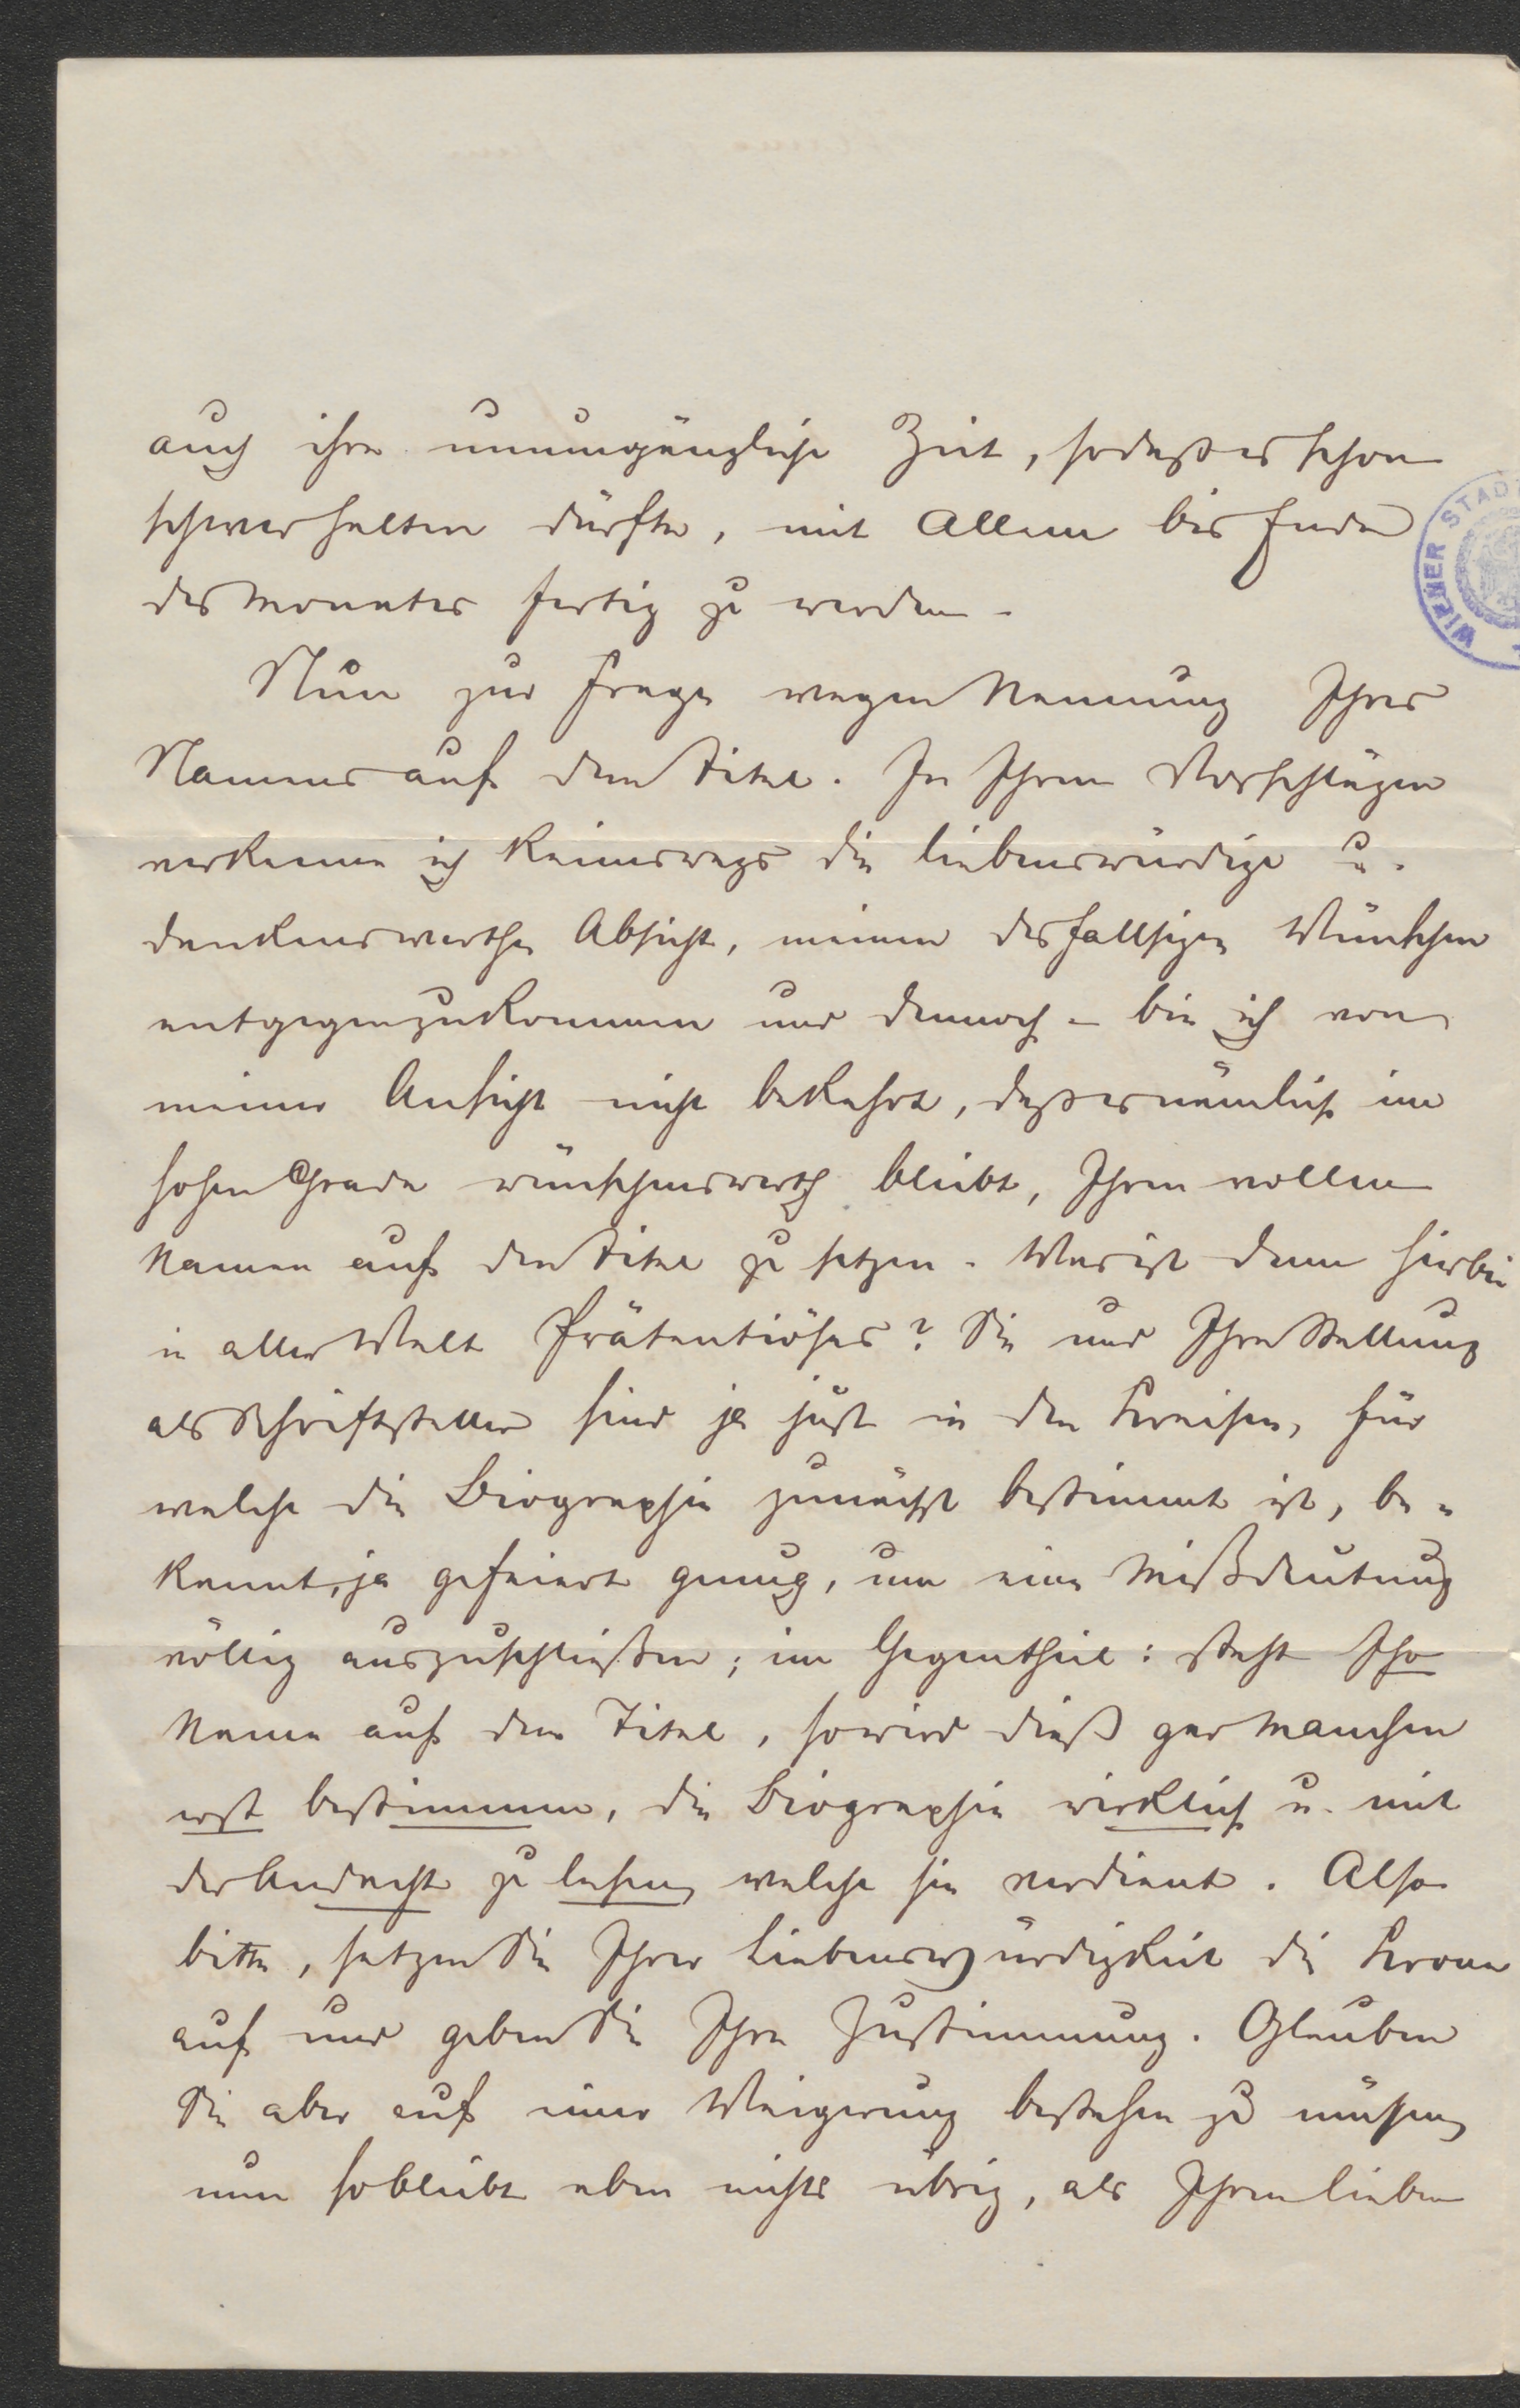 auch ihre unumgängliche Zeit, sodaß es schon
schwer halten dürfte, mit Allem bis Ende
des Monates fertig zu werden.
Nun zur Frage wegen Nennung Ihres
Namens auf dem Titel. In Ihren Vorschlägen
verkenne ich keineswegs die liebenswürdige u.
dankenswerthe Absicht, meinen desfallsigen Wünschen
entgegenzukommen und dennoch – bin ich von
meiner Ansicht nicht bekehrt, daß es nämlich im
hohen Grade wünschenswerth bleibt, Ihren vollen
Namen auf den Titel zu setzen. Was ist denn hierbei
in aller Welt Prätentiöses? Sie und Ihre Stellung
als Schriftsteller sind ja just in den Kreisen, für
welche die Biographie zunächst bestimmt ist, be-
kannt, ja gefeiert genug, um eine Mißdeutung
völlig auszuschließen; im Gegentheil: steht Ihr
Name auf dem Titel, so wird dieß gar Manchen
erst bestimmen, die Biographie wirklich u. mit
der Andacht zu lesen, welche sie verdient. Also
bitte, setzen Sie Ihrer Liebenswürdigkeit die Krone
auf und geben Sie Ihre Zustimmung. Glauben
Sie aber auf einer Weigerung bestehen zu müssen,
nun so bleibt eben nichts übrig, als Ihren lieben
WIENER STADT